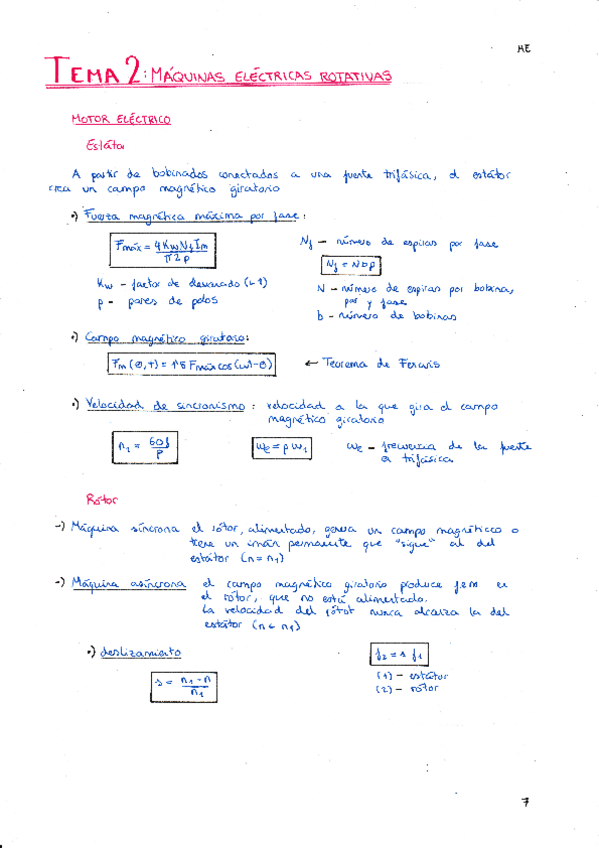 ME
TEMA 2: MÁQUINAS ELÉCTRICAS ROTATIVAS
MOTOR ELÉCTRICO
Estátor
A partir de bobinados conectados a una fuente trifásica, el estátor
crea un campo magnético giratorio
•) Fuerza magnética máxima por fase:
Fmáx = 4 Kw Nf Im / π 2p
Nf – número de espiras por fase
Nf = N b p
Kw – factor de devanado (<1)
p – pares de polos
N – número de espiras por bobina,
par y fase
b – número de bobinas
•) Campo magnético giratorio:
Fm (θ, t) = 1'5 Fmáx cos (ωt - θ)
← Teorema de Ferraris
•) Velocidad de sincronismo: velocidad a la que gira el campo
magnético giratorio
n1 = 60f / p
ωE = p ω1
ωE – frecuencia de la fuente
trifásica
Rótor
–) Máquina síncrona el rótor, alimentado, genera un campo magnéticco o
tiene un imán permanente que "sigue" al del
estátor (n = n1)
–) Máquina asíncrona el campo magnético giratorio produce fem en
el rótor, que no está alimentado.
La velocidad del rótor nunca alcanza la del
estátor (n < n1)
•) deslizamiento
s = n1 - n / n1
f2 = s f1
(1) – estátor
(2) – rótor
7